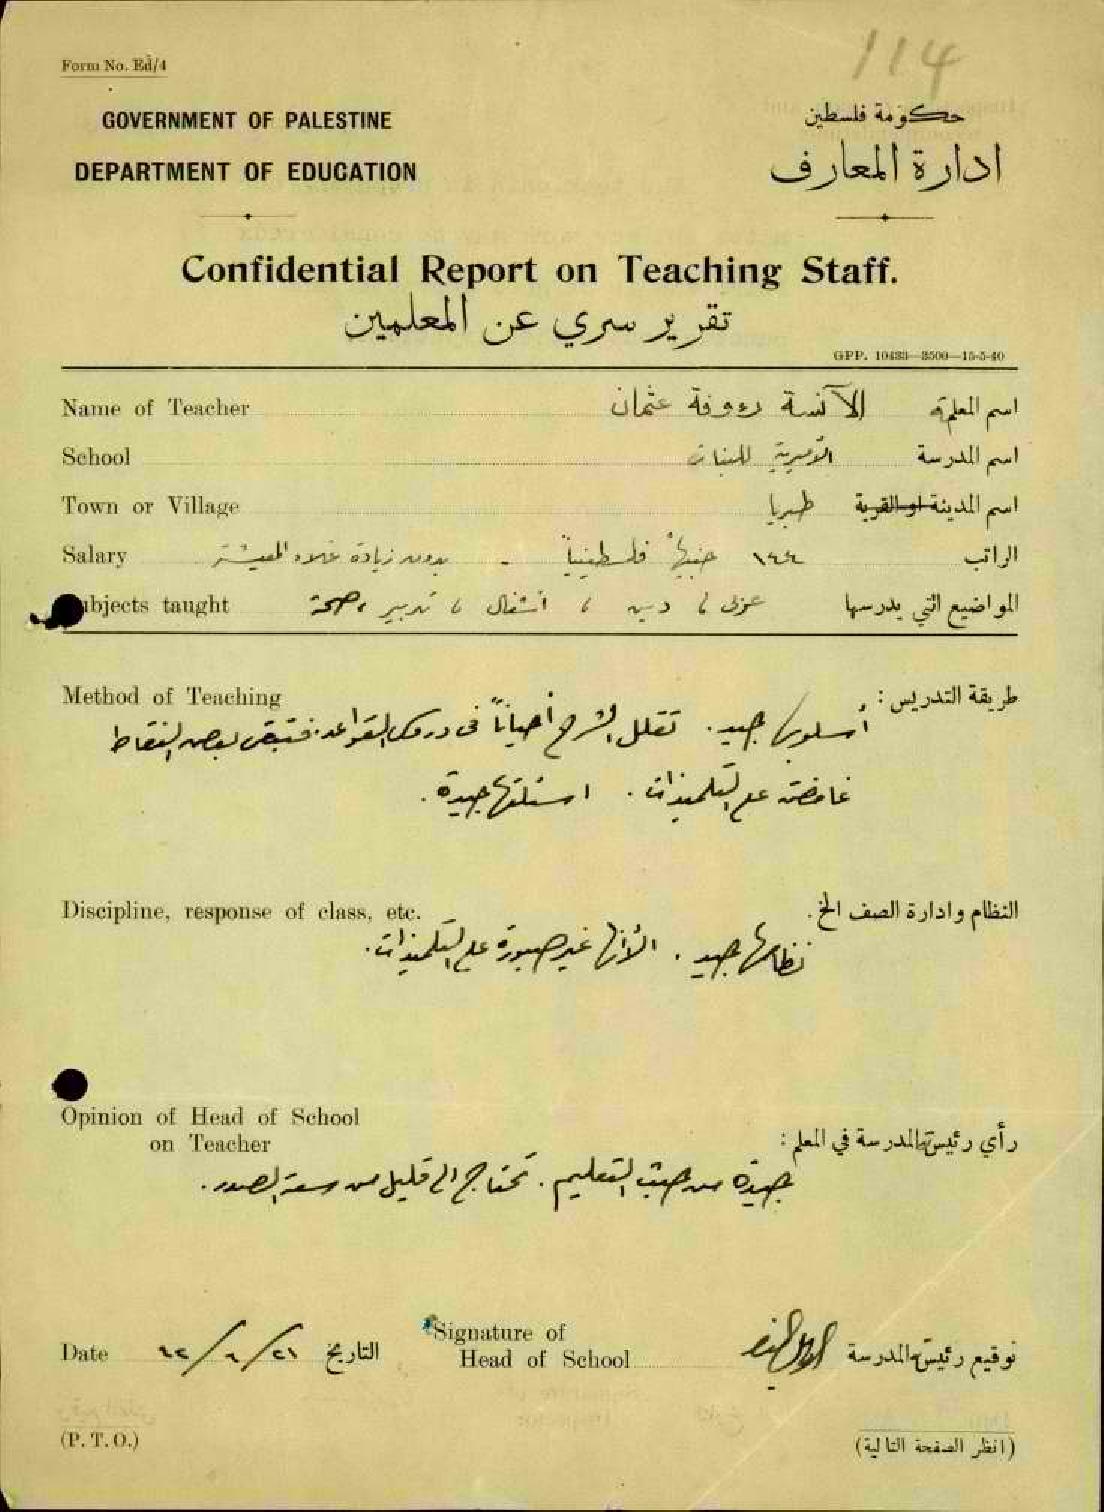 114
Form No. Ed/4
GOVERNMENT OF PALESTINE
حكومة فلسطين
DEPARTMENT OF EDUCATION
ادارة المعارف
Confidential Report on Teaching Staff.
تقرير سري عن المعلمين
GPP. 10433—3500—15-5-40
Name of Teacher الآنسة رءوفة عثمان اسم المعلمة
School الأميرية للبنات اسم المدرسة
Town or Village طبريا اسم المدينة او القرية
Salary ١٤٤ جنيهاً فلسطينياً - بدون زيادة غلاء المعيشة الراتب
Subjects taught عربي ، دين ، أشغال ، تدبير ، صحة المواضيع التي يدرسها
Method of Teaching طريقة التدريس :
أسلوبها جيد . تقلل الشرح أحياناً في دروس القواعد فتبقى بعض النقاط
غامضة على التلميذات . اسئلتها جيدة .
Discipline, response of class, etc. النظام وادارة الصف الخ .
نظامها جيد . الا أنها غير صبورة على التلميذات .
Opinion of Head of School
on Teacher رأي رئيسة المدرسة في المعلم :
جيدة من حيث التعليم . تحتاج الى قليل من سعة الصدر .
Date ٤٢/٦/٢٦ التاريخ Signature of
Head of School توقيع رئيسة المدرسة
(P. T. O.) (انظر الصفحة التالية)